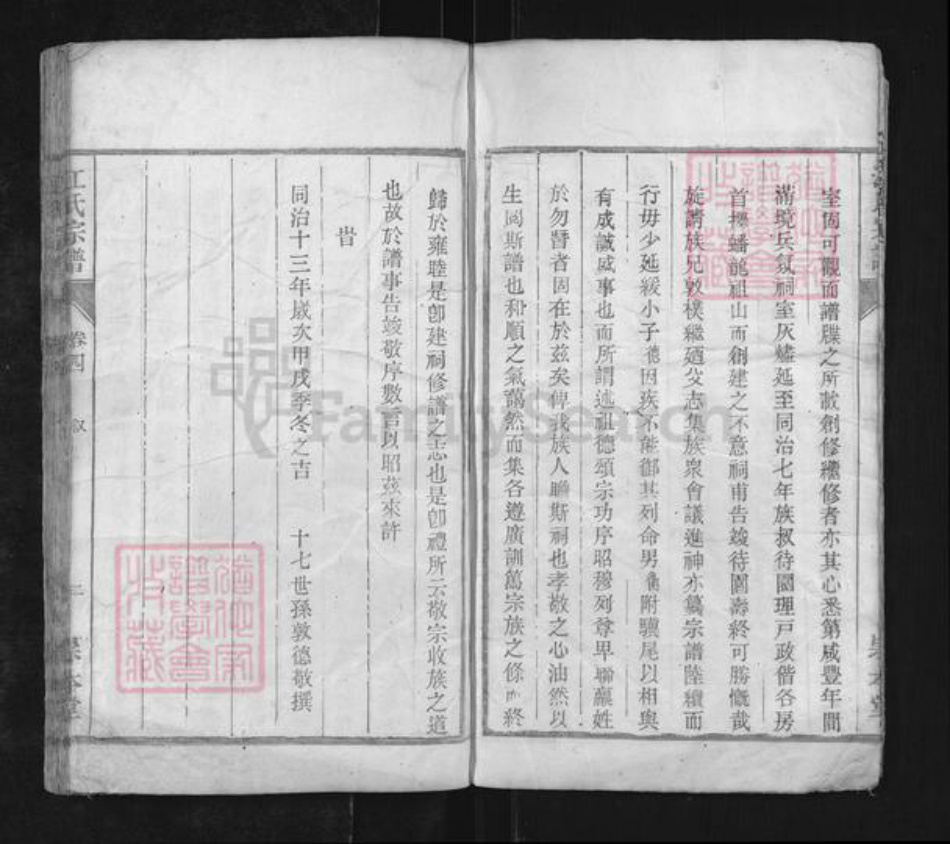 室固可觀而譜牒之所𢾾創修繼修者亦其心悉第咸豐年間
滿境兵氛祠室灰燼延至同治七年族叔待園理戶政偕各房
首摆蟠龍祖山而創建之不意祠甫告竣待園壽終可勝慨哉
旋請族兄敦樸繼廼父志集族衆會議進神亦纂宗譜陸續而
行毋少延緩小子德因疾不能御其列命男附驥尾以相與
有成誠盛事也而所謂述祖德頌宗功序昭穆列尊卑聯藥姓
於勿替者固在於茲矣俾我族人瞻斯祠也孝敬之心油然以
生閱斯譜也和順之氣藹然而集各遵廣訓萬宗族之條而終
歸於雍睦是卽建祠修譜之志也是卽禮所云敬宗收族之道
也故於譜事告竣敬序數言以昭茲來許
旹
同治十三年歲次甲戌季冬之吉 十七世孫敦德敬撰
江氏宗譜 卷四 敘 二 崇本堂
猶他家譜學會收藏
猶他家譜學會收藏
FamilySearch